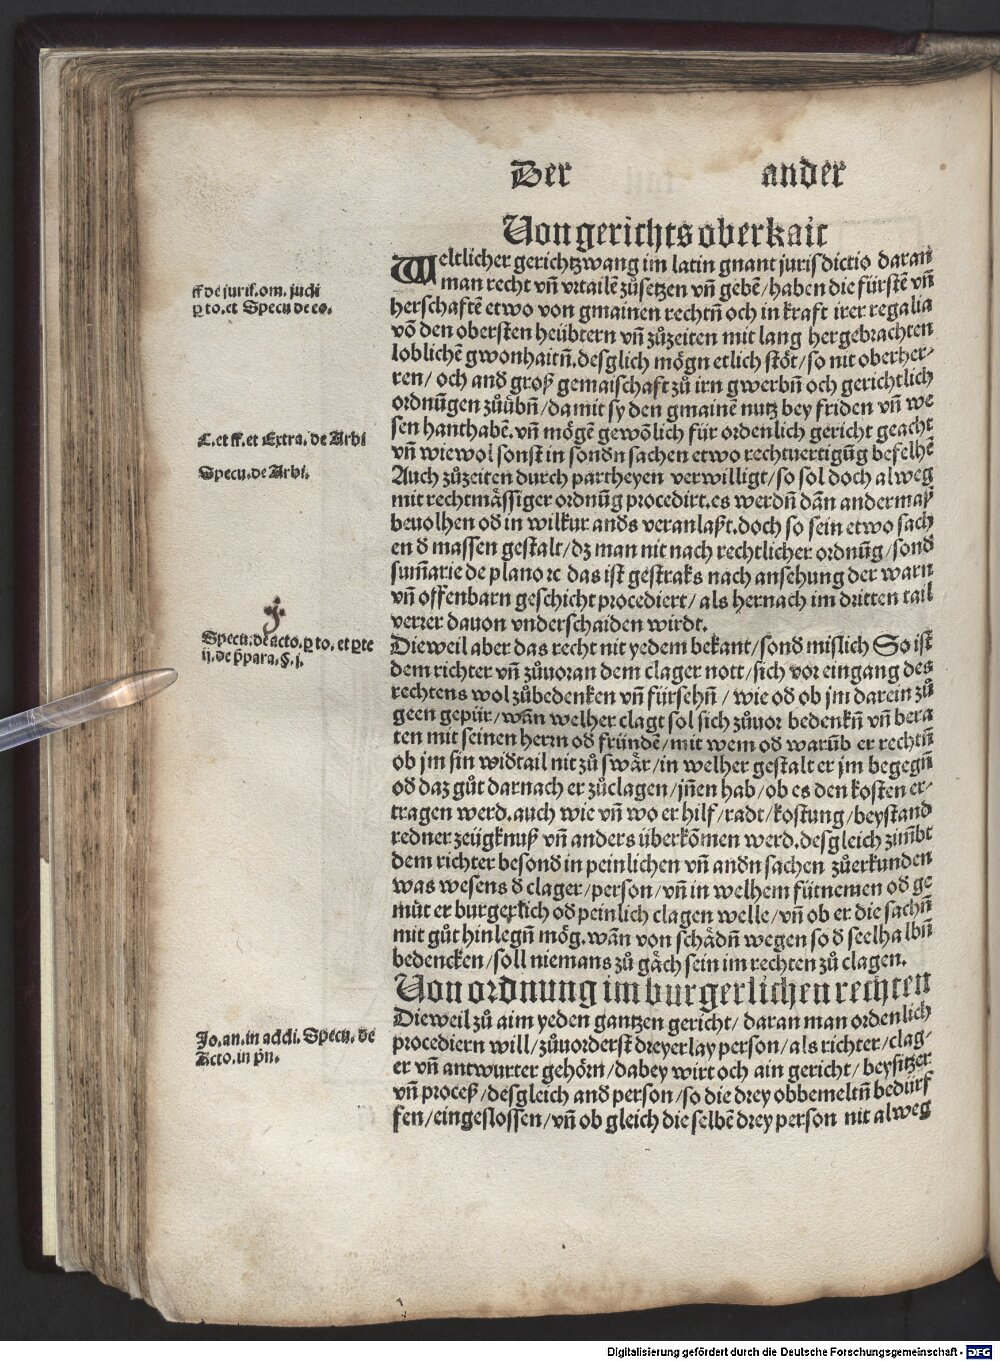 Der ander
Von gerichts oberkait
Weltlicher gerichtzwang im latin gnant jurisdictio daran
man recht vñ vrtailẽ zůsetzen vñ gebẽ/haben die fürstẽ vñ
herschaftẽ etwo von gmainen rechtñ och in kraft irer regalia
võ den obersten heübtern vñ zůzeiten mit lang hergebrachten
loblichẽ gwonhaitñ.desglich mögn etlich stöt/so nit oberher⸗
ren/ och and groß gemaischaft zů irn gwerbñ och gerichtlich
ordnũgen zůübñ/damit sy den gmainẽ nutz bey friden vñ we
sen hanthabẽ.vñ mögẽ gewõlich für ordenlich gericht geacht
vñ wiewol sonst in sondn sachen etwo rechtuertigũg befelhẽ
Auch zůzeiten durch partheyen verwilligt/so sol doch alweg
mit rechtmässiger ordnũg procedirt.es werdñ dãn andermaß
beuolhen od in wilkur ands veranlaßt.doch so sein etwo sach
en d massen gestalt/dz man nit nach rechtlicher ordnũg/sond
sum̃arie de plano ꝛc das ist gestraks nach ansehung der warn
vñ offenbarn geschicht procediert/ als hernach im dritten tail
verrer dauon vnderschaiden wirdt.
Dieweil aber das recht nit yedem bekant/sond mislich So ist
dem richter vñ zůuoran dem clager nott/sich vor eingang des
rechtens wol zůbedenken vñ fürsehñ / wie od ob jm darein zů
geen gepür/wãn welher clagt sol sich zůuor bedenkñ vñ bera
ten mit seinen herrn od fründẽ/mit wem od warũb er rechtñ
ob jm sin widtail nit zů swär/in welher gestalt er jm begegñ
od daz gůt darnach er zůclagen/jñen hab/ob es den kosten er⸗
tragen werd.auch wie vñ wo er hilf/radt/kostung/beystand
redner zeügknuß vñ anders überkõmen werd.desgleich zim̃bt
dem richter besond in peinlichen vñ andn sachen zůerkunden
was wesens d clager/person/vñ in welhem fürnemen od ge
müt er burgerlich od peinlich clagen welle/vñ ob er die sachñ
mit gůt hinlegñ mög.wãn von schädñ wegen so d seelhalbñ
bedencken/soll niemans zů gäch sein im rechten zů clagen.
Von ordnung im burgerlichen rechten
Dieweil zů aim yeden gantzen gericht/ daran man ordenlich
procediern will/zůuorderst dreyerlay person/als richter/clag⸗
er vñ antwurter gehörn/dabey wirt och ain gericht/beysitzer
vñ proceß/desgleich and person/so die drey obbemeltñ bedürf
fen/eingeslossen/vñ ob gleich die selbẽ drey person nit alweg
ff de jurisi.om. judi
ꝑ to.et Specu de eo.
C.et ff.et Extra.de Arbi
Specu.de Arbi.
Specu.de acto.ꝑ to.et ꝑte
ij.de p̃para.§.j.
Jo.an.in addi.Specu.de
Acto.in pñ.
Digitalisierung gefördert durch die Deutsche Forschungsgemeinschaft - DFG